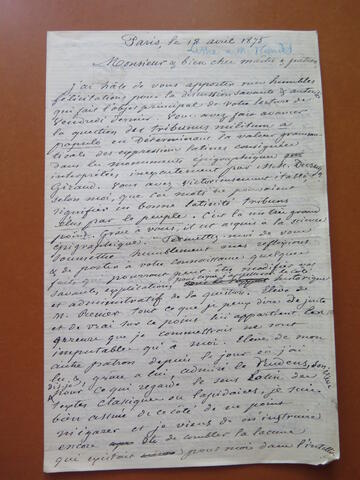 Paris, le 18 avril 1875
Lettre à M.
Monsieur & bien cher maître & patron
J'ai hâte de vous apporter mes humbles
félicitations pour la discussion savante &
qui fait l'objet principal de votre lecture de
Vendredi dernier. Vous avez fait avancer
la question des tribunes militum a
populo en déterminant la valeur gramma-
ticale des expressions latines consignées
dans les monuments épigraphiques
interprétés inexactement par M.M.
Giraud. Vous avez victorieusement établi,
selon moi, que les mots ne pouvaient
signifier en bonne latinité tribuns
élus par le peuple. C'est là un grand
point. Grâce à vous, il est acquis à la science
épigraphique. Permettez moi de vous
soumettre humblement mes réflexions
& de porter à votre connaissance quelques
faits qui pourront peut-être modifier vos
savantes explications pour ce qui le côté
historique
et administratif de la question. Élève de
M. Renier tout ce que je peux dire de juste
et de vrai sur ce point lui appartient. Les
erreurs que je commettrais ne sont
imputables qu'à moi. Élève de mon
autre patron depuis le jour où j'ai
lu &, grâce à lui, admiré le Rudens,
pour ce qui regarde le sens latin des
textes classiques ou lapidaires, je suis
bien assuré de ce côté de ne point
m'égarer et je viens de m'instruire
encore & de combler la lacune
qui existait pour moi dans l'